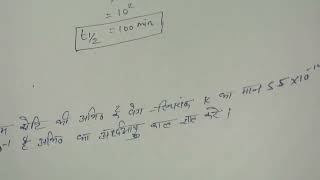 = 10²
t1/2 = 100 min
कोटि की अभि० है वेग स्थिरांक K का मान 5.5 × 10⁻¹
है अभि० का अर्धआयु काल ज्ञात करें।